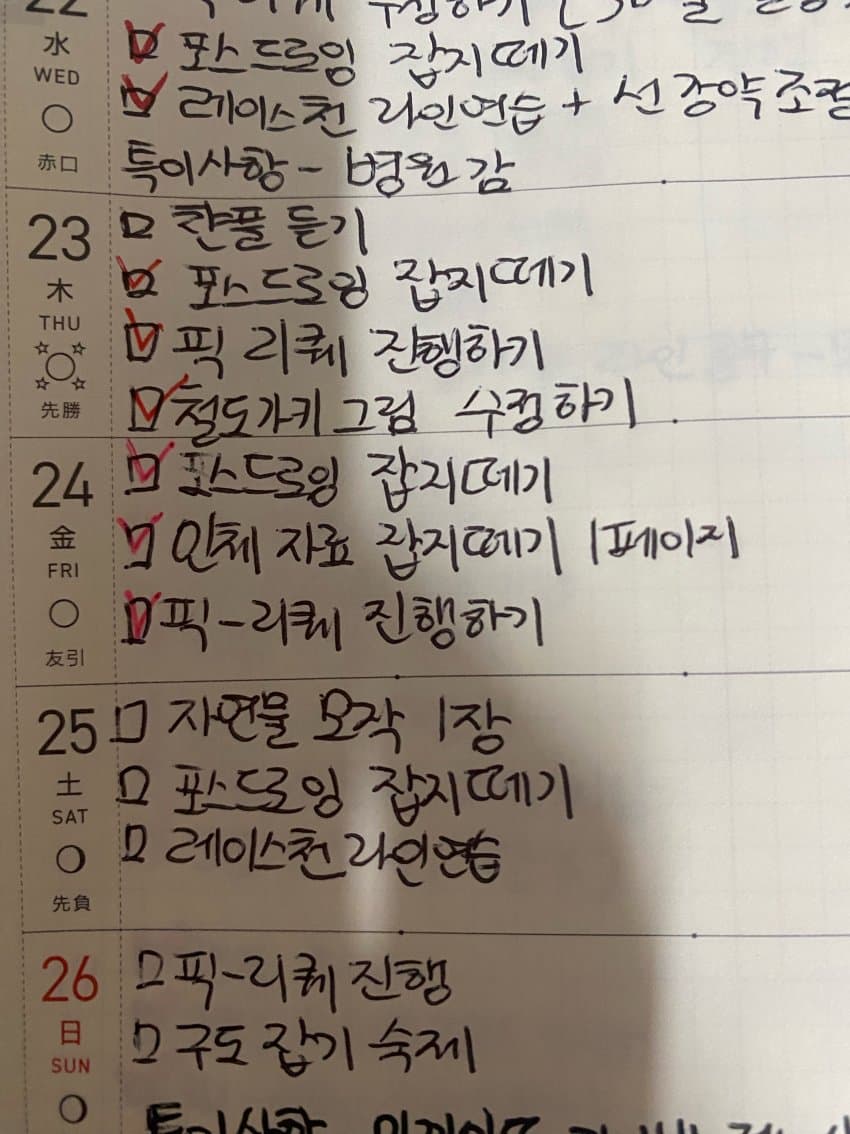 22
水
WED
赤口
포스드로잉 잡지떼기
레이스천 라인연습 + 선 강약조절
특이사항 - 병원 감
23
木
THU
先勝
듣기
포스드로잉 잡지떼기
픽 리퀘 진행하기
철도가키 그림 수정하기
24
金
FRI
友引
포스드로잉 잡지떼기
인체 자료 잡지떼기 1페이지
픽-리퀘 진행하기
25
土
SAT
先負
자연물 모작 1장
포스드로잉 잡지떼기
레이스천 라인연습
26
日
SUN
픽-리퀘 진행
구도 잡기 숙제
특이사항